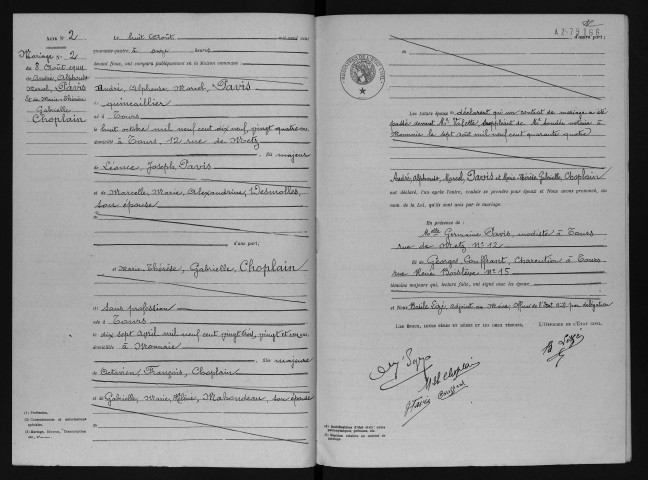 Acte N° 2
Mariage N° 2
du 8 Août 1944
de André, Alphonse
Marcel, Pavis
Et de Marie-Thérèse
Gabrielle
Choplain
Le huit Août mil neuf cent
quarante-quatre à onze heures
devant Nous, ont comparu publiquement en la Maison commune :
André, Alphonse, Marcel, Pavis
(1) quincaillier
né à Tours
le huit octobre mil neuf cent dix neuf, vingt quatre ans
domicilié à Tours, 12 rue de Metz
fils majeur
de Léonce, Joseph, Pavis
et de Marcelle, Marie, Alexandrine, Desmolles,
son épouse
d'une part;
et Marie-Thérèse, Gabrielle, Choplain
(1) Sans profession
née à Tours
le dix sept Avril mil neuf cent vingt trois, vingt et un ans
domiciliée à Monnaie
fille majeure
de Octavien, François, Choplain
et de Gabrielle, Marie, Hélène, Mabondeau, son épouse
(1) Profession.
(2) Consentements et autorisations
spéciales.
(3) Mariage, Divorce, Transcription
A2-75166
d'autre part;
Les futurs époux déclarent qu'un contrat de mariage a été
passé devant Me Valette, suppléant de Me notaire à
Monnaie le sept août mil neuf cent quarante quatre
André, Alphonse, Marcel, Pavis et Marie-Thérèse Gabrielle Choplain
ont déclaré, l'un après l'autre, vouloir se prendre pour époux et Nous avons prononcé, au
nom de la Loi, qu'ils sont unis par le mariage.
En présence de :
Melle Germaine Pavis, modiste à Tours
rue de Metz N° 12
Et de Georges Couffrant, Charcutier à Tours
rue René Boislève N° 15
témoins majeurs qui, lecture faite, ont signé avec les époux
et Nous adjoint au Maire, Officier de l'Etat civil par délégation
Les Epoux, leurs pères et mères et les deux témoins,
L'Officier de l'Etat civil,
M Th Choplain
G Pavis
Couffrant